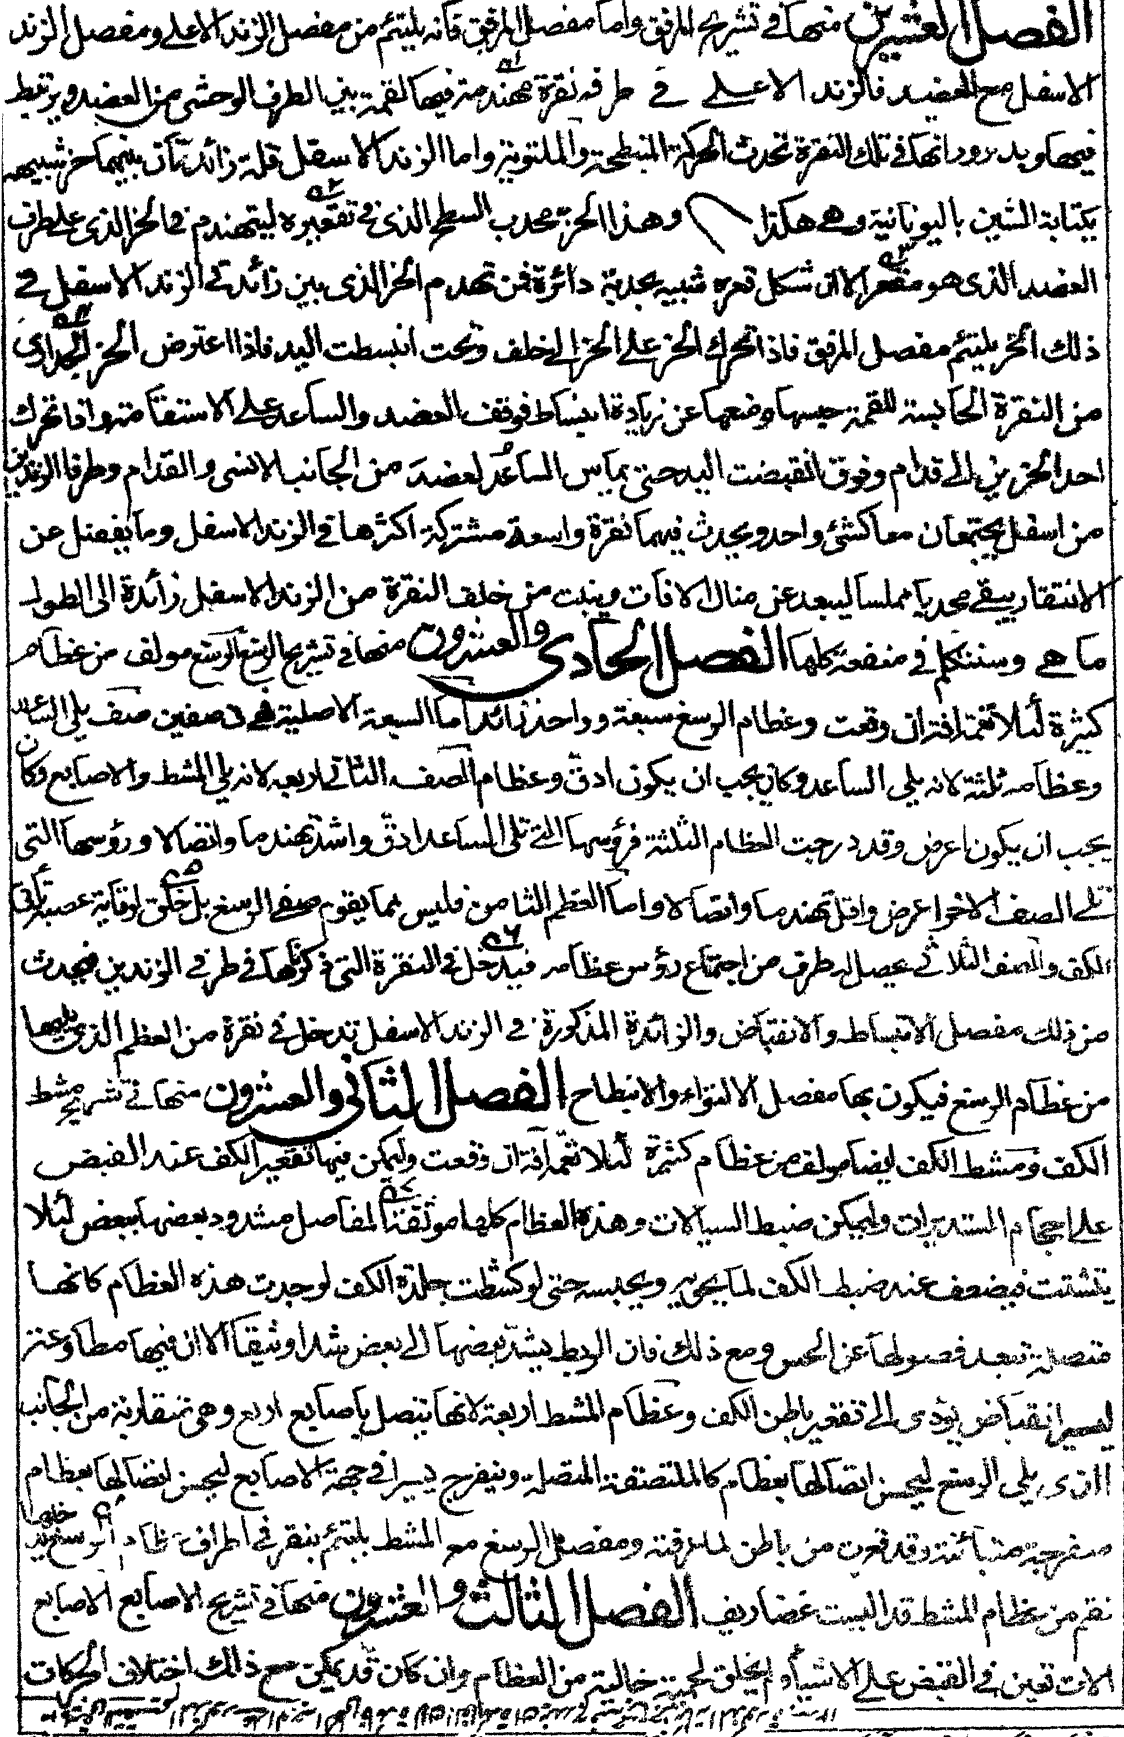 الفصل العشرين منها في تشريح المرفق واما مفصل المرفق فانه يلتئم من مفصل الزند الاعلى ومفصل الزند
الاسفل مع العضد فالزند الاعلى في طرفه نقرة مهندمة فيها لقمة بين الطرف الوحشى من العضد ويرتبط
فيها وبدورانها في تلك النقرة تحدث الحركة المنبطحة والملتوية واما الزند الاسفل فله زائدتان بينهما حز شبيه
بكتابة الشين باليونانية وهي هكذا وهذا الحز محدب السطح الذى في تقعيره ليتهندم في الحز الذى على طرف
العضد الذى هو مقعر الا ان شكل قعره شبيه بحدبة دائرة فمن تهندم الحز الذى بين زائدتى الزند الاسفل في
ذلك الحز يلتئم مفصل المرفق فاذا تحرك الحز على الحز الى خلف وتحت انبسطت اليد فاذا اعترض الحز الجدارى
من النقرة الحابسة للقمة حبسها ومنعها عن زيادة انبساط فوقف العضد والساعد على الاستقامة واذا تحرك
احد الحزين الى قدام وفوق انقبضت اليد حتى يماس الساعد لعضد من الجانب الانسى والقدام وطرفا الزندين
من اسفل يجتمعان معا كشئ واحد ويحدث فيهما نقرة واسعة مشتركة اكثرها في الزند الاسفل وما يفضل عن
الانتقار يبقى محدبا مملسا ليبعد عن منال الافات وينبت من خلف النقرة من الزند الاسفل زائدة الى الطول
ما هي وسنتكلم في منفعة كلها الفصل الحادى والعشرون منها في تشريح الرسغ الرسغ مولف من عظام
كثيرة لئلا تعمه افة ان وقعت وعظام الرسغ سبعة وواحد زائد اما السبعة الاصلية فهي في صفين صف يلى الساعد
وعظامه ثلثة لانه يلى الساعد وكان يجب ان يكون ادق وعظام الصف الثانى اربعة لانه يلى المشط والاصابع وكان
يجب ان يكون اعرض وقد درجت العظام الثلثة فرؤسها التى تلى الساعد ادق واشد تهندما واتصالا ورؤسها التى
تلى الصف الاخر اعرض واقل تهندما واتصالا واما العظم الثامن فليس مما يقوم صفى الرسغ بل خلق لوقاية عصبة تأتى
الكف والصف الثلاثى يحصل له طرف من اجتماع رؤس عظامه فيدخل في النقرة التى ذكرناها في طرفى الزندين فيحدث
من ذلك مفصل الانبساط والانقباض والزائدة المذكورة في الزند الاسفل تدخل في نقرة من العظم الذى يليها
من عظام الرسغ فيكون بها مفصل الالتواء والانبطاح الفصل الثانى والعشرون منها في تشريح مشط
الكف ومشط الكف ايضا مولف من عظام كثيرة لئلا تعمه آفة ان وقعت وليمكن فيها تقعير الكف عند القبض
على احجام المستديرات وليمكن ضبط السيالات وهذه العظام كلها موثقة المفاصل مشدود بعضها ببعض لئلا
يتشتت فيضعف عند ضبط الكف لما يحويه ويحبسه حتى لو كشطت جلدة الكف لوجدت هذه العظام كانها
متصلة تبعد فصولها عن الحس ومع ذلك فان الربط يشد بعضها الى بعض شدا وثيقا الا ان فيها مطاوعة
ليسير انقباض يؤدى الى تقعير باطن الكف وعظام المشط اربعة لانها يتصل باصابع اربع وهى متقاربة من الجانب
الذى يلى الرسغ ليحسن اتصالها بعظام كالملتصقة المتصلة وينفرج يسيرا في جهة الاصابع ليحسن اتصالها بعظام
منفرجة متباينة وقد قعرت من باطن لما عرفته ومفصل الرسغ مع المشط يلتئم بنقر في اطراف عظام الرسغ يدخلها
نقم من عظام المشط قد البست غضاريف الفصل الثالث والعشرون منها في تشريح الاصابع الاصابع
الات تعين في القبض على الاشياء ولم يخلق لحمية خالية من العظام وان كان قد يمكن مع ذلك اختلاف الحركات